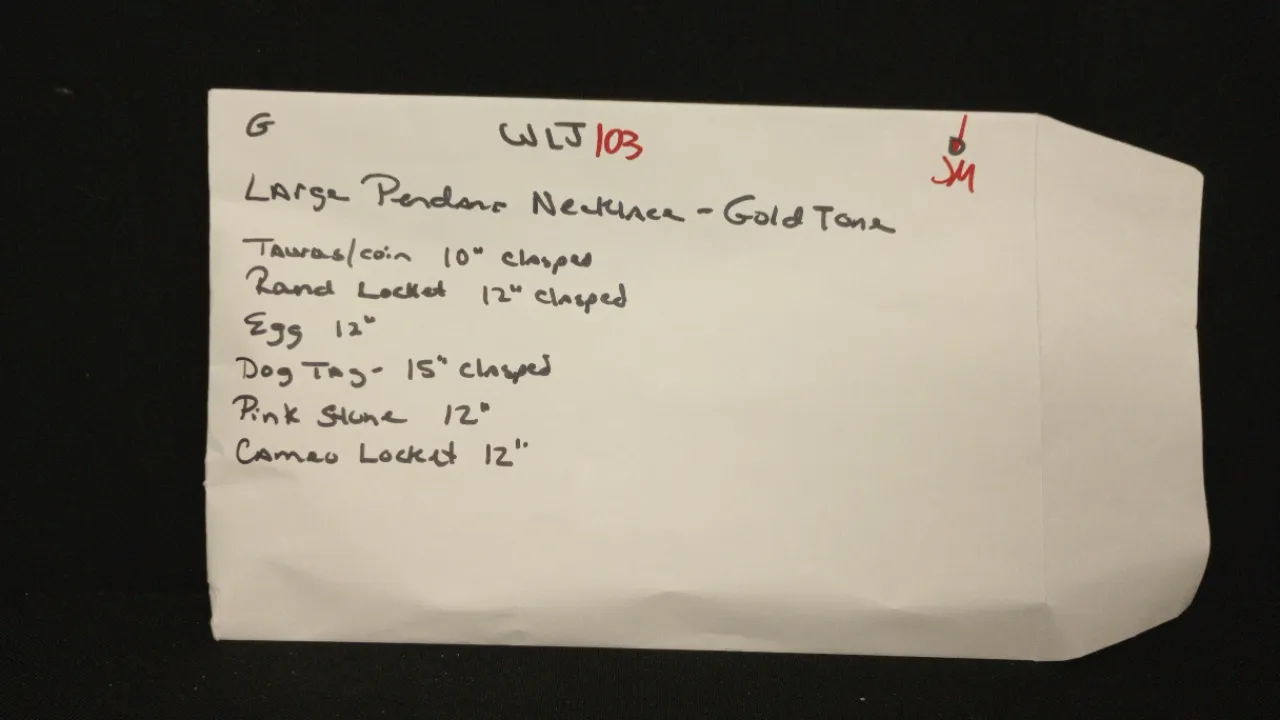 G WLJ 103
JM
Large Pendant Necklace - Gold Tone
Taurus/coin 10" clasped
Rand Locket 12" clasped
Egg 12"
Dog Tag - 15" clasped
Pink Stone 12"
Cameo Locket 12"